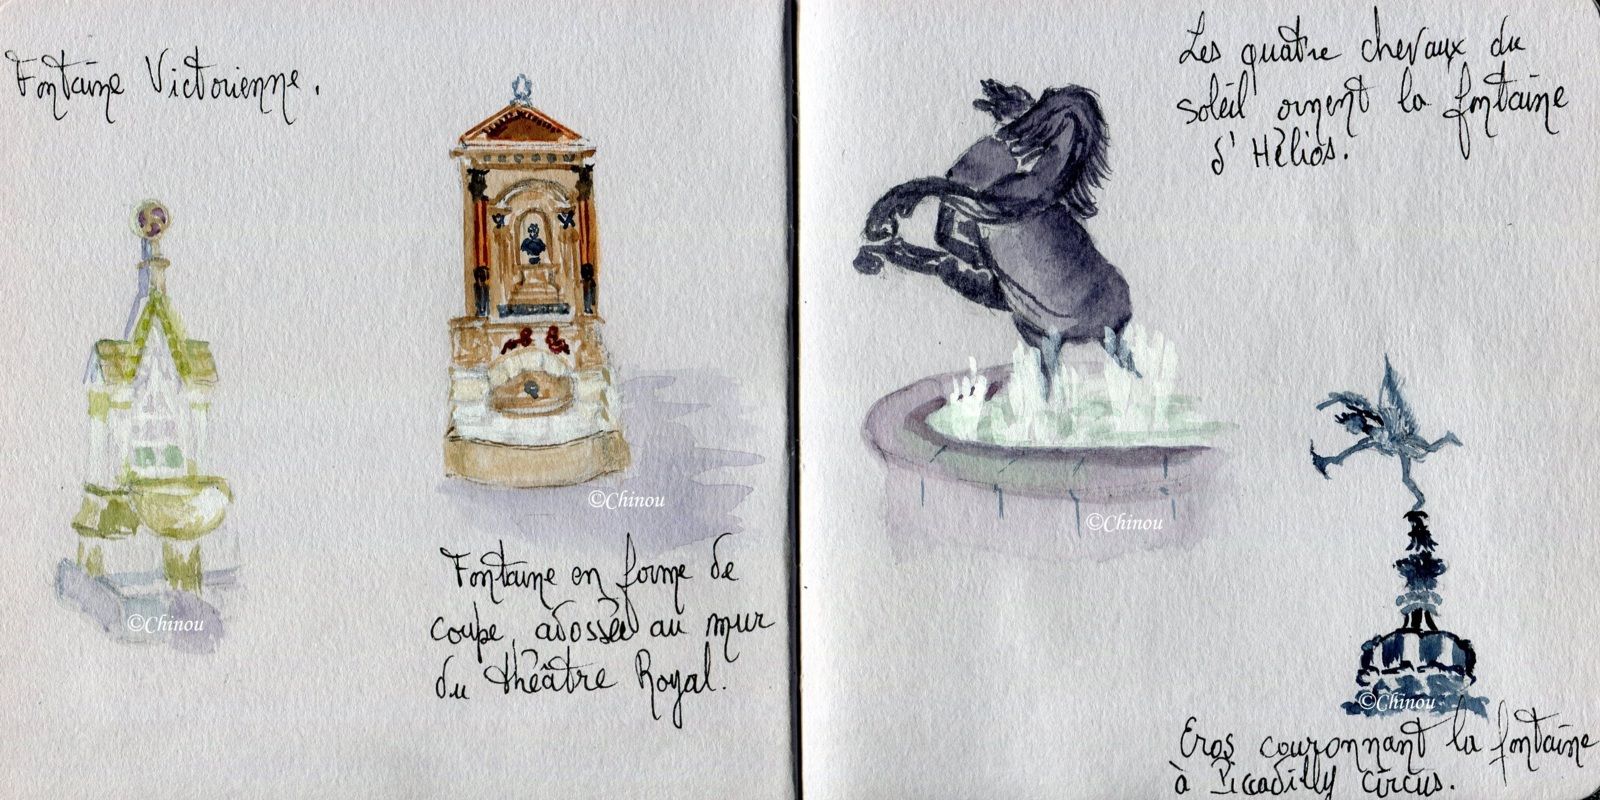 Fontaine Victorienne.
©Chinou
Fontaine en forme de
coupe, adossée au mur
du théâtre Royal.
©Chinou
Les quatre chevaux du
soleil ornent la fontaine
d'Hélios.
©Chinou
©Chinou
Eros couronnant la fontaine
à Piccadilly circus.